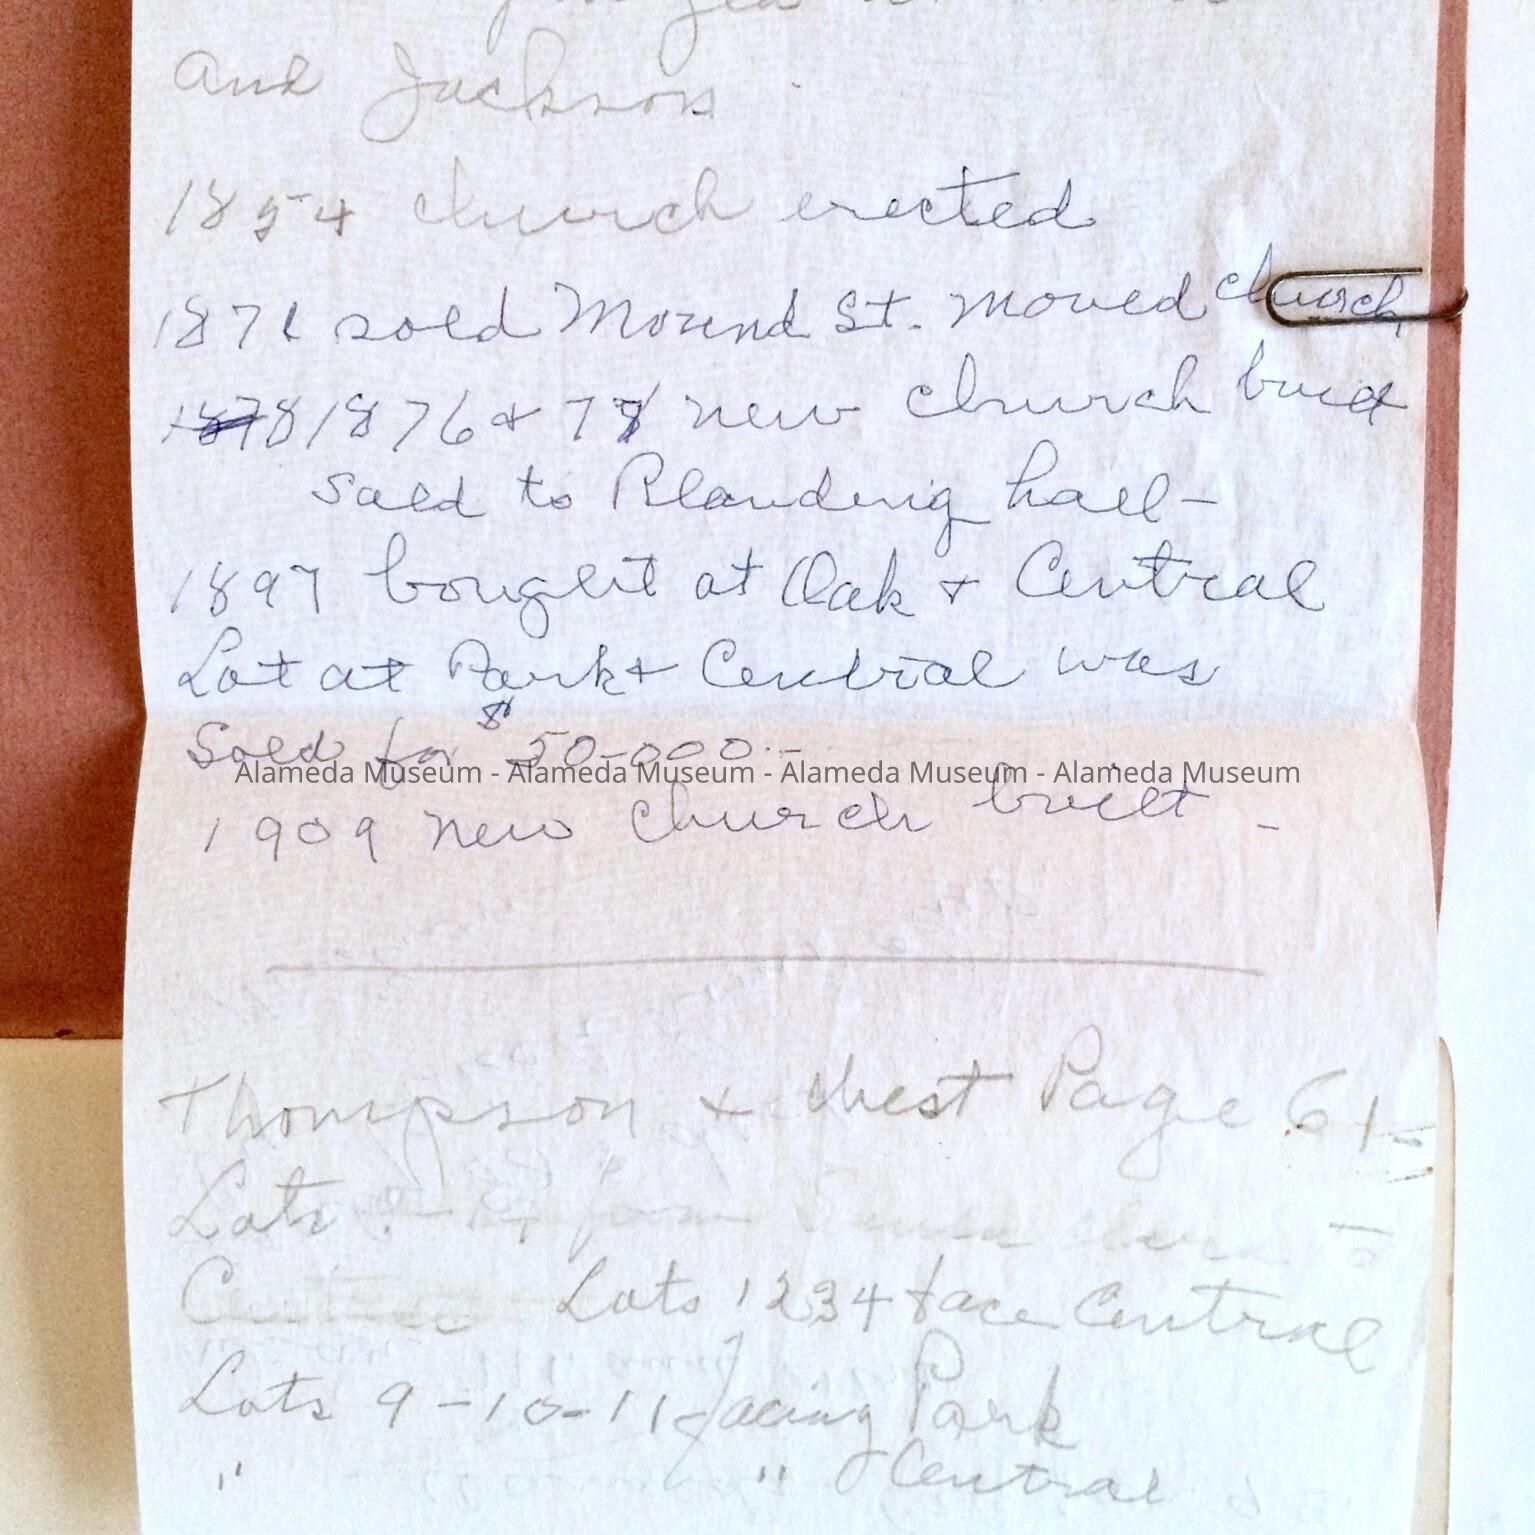 and Jackson.
1854 church erected
1871 sold Mound St. moved church
1878 1876 & 78 new church build
sold to Blanding hall -
1897 bought at Oak & Central
Lot at Park & Central was
Sold for $50-000.-
Alameda Museum - Alameda Museum - Alameda Museum - Alameda Museum
1909 new church built -
Thompson & West Page 61
Lots
Lots 1 2 3 4 face Central
Lots 9-10-11- facing Park
" " & Central